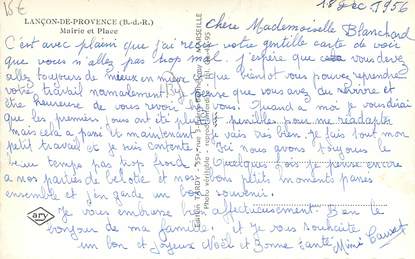 15€
LANÇON-DE-PROVENCE (B.-d.-R.)
Mairie et Place
18 Dec 1956
Chère Mademoiselle Blanchard
C'est avec plaisir que j'ai reçu votre gentille carte de voir
que vous n'allez pas trop mal. j'espère que vous devez
aller toujours de mieux en mieux que bientôt vous pouvez reprendre
votre travail normalement. Je pense que vous avez du revivre et
être heureuse de vous revoir chez vous. Quand a moi je voudrai
que les premiers jours ont été plus penibles pour me readapter
mais cela a passé et maintenant je vais très bien. Je fais tout mon
petit travail et je suis contente. Ici nous avons toujours le
beau temps pas trop froid. Quelques fois je pense encore
a nos parties de belote et nos bons petits moments passés
ensemble et j'en garde un bon souvenir.
Je vous embrasse bien affectueusement. Bien le
bonjour de ma famille. et je vous souhaite
un bon et joyeux Noël et Bonne Santé Mimi
Edition TARDY - MARSEILLE
Photo véritable - reproduction
ary